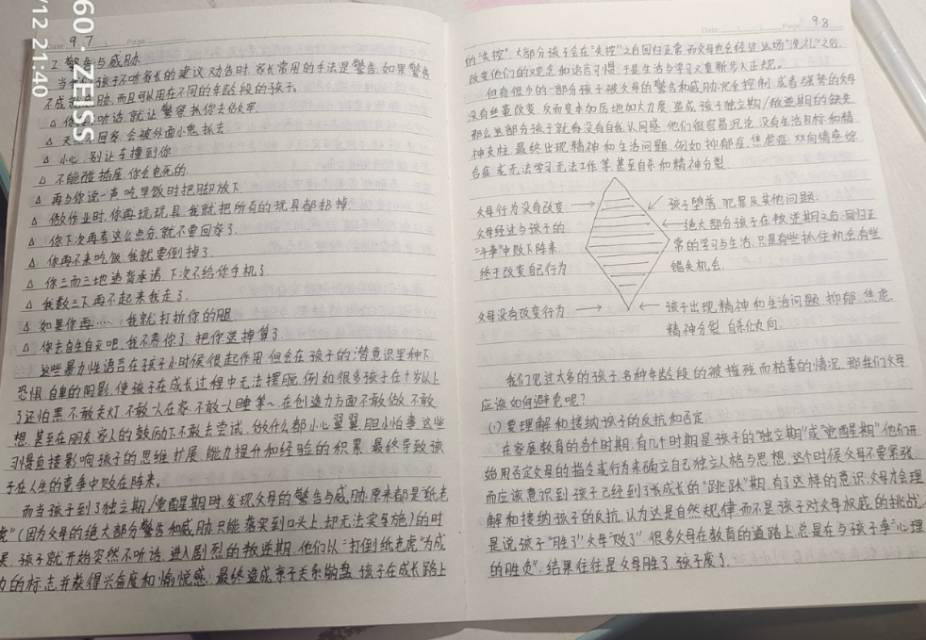 60· ZEISS
/12 21:40
9 7
2. 警告与威胁
当 孩子不听家长的建议、劝告时,家长常用的手法是警告,如果警告
不成 威胁,而且可以用在不同的年龄段的孩子。
△ 你 听话,就让警察 你去
△ 天 会被外面小 抓去
△ 小心,别让车撞到你
△ 不能碰插座,你会电死的
△ 再与你说一声,吃早饭时把脚放下
△ 做作业时,你再玩玩具,我就把所有的玩具都扔掉
△ 你下次再考这么点分,就不要回家了
△ 你再不来吃饭,我就要倒掉了
△ 你三而二地违背承诺,下次不给你手机了
△ 我数三下再不起来我走了
△ 如果你再……,我就打折你的腿
△ 你去自生自灭吧,我不养你了,把你送掉算了
这些暴力性语言在孩子小时候很起作用,但会在孩子的潜意识里种下
恐惧、自卑的阴影,使孩子在成长过程中无法摆脱,例如很多孩子在十岁以上
了还怕黑、不敢关灯、不敢一人在家、不敢一人睡等~,在创造力方面不敢做、不敢
想,甚至在朋友、家人的鼓励下不敢去尝试,做什么都小心翼翼、胆小怕事,这些
习惯直接影响孩子的思维扩展、能力提升和经验的积累,最终导致孩
子在人生的竞争中败在阵来。
而当孩子到了独立期/觉醒期时,发现父母的警告与威胁原来都是“纸老
虎”(因为父母的绝大部分警告和威胁只能落实到口头上,却无法实与施)的时
候,孩子就开始突然不听话,进入剧烈的叛逆期,他们以“打倒纸老虎”为成
功的标志并获得兴奋度和愉悦感,最终造成亲子关系 ,孩子在成长路上
9 8
的“失控”,大部分孩子会在“失控”之后回归正常,而父母也会经过这场“洗礼”之后,
改变他们的观念和语言习惯,于是生活与学习又重新步入正规。
但有很小的一部分孩子被父母的警告和威胁完全控制,或者强势的父母
没有丝毫改变,反而变本加厉地加大力度,造成孩子独立期/叛逆期的缺失,
那么这部分孩子就会没有自我认同感,他们很容易沉沦,没有生活目标和精
神支柱,最终出现精神和生活问题,例如抑郁症、焦虑症、双向情感综
合症或无法学习、无法工作等,甚至自杀和精神分裂
父母行为没有改变
孩子堕落、犯罪及其他问题
父母经过与孩子的
“斗争”中败下阵来,
终于改变自己行为
绝大部分孩子在叛逆期之后,回归正
常的学习与生活,只是有些抓住机会有些
错失机会
父母没有改变行为
孩子出现精神和生活问题,抑郁、焦虑、
精神分裂、自杀 向
我们见过太多的孩子各种年龄段的被摧残而枯萎的情况,那我们父母
应该如何避免呢?
(1) 要理解和接纳孩子的反抗和否定
在家庭教育的各个时期,有几个时期是孩子的“独立期”或“觉醒期”,他们开
始用否定父母的指令或行为来确立自己独立人格与思想,这个时候父母不要紧张,
而应该意识到孩子已经到了成长的“跳跃”期,有了这样的意识,父母才会理
解和接纳孩子的反抗,认为这是自然规律,而不是孩子对父母权威的挑战,
是说孩子“胜了”父母“败了”,很多父母在教育的道路上总是在与孩子争“心理
的胜负”,结果往往是父母胜了,孩子废了